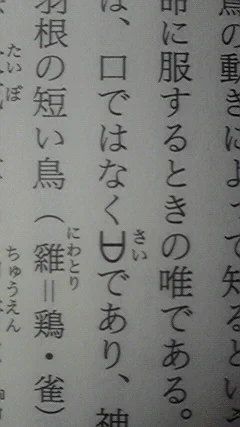 鳥の動きによって知るという
命に服するときの唯である。
は、口ではなく𠙵さいであり、神
羽根の短い鳥（雞にわとり＝鶏・雀）
たいぼ
ちゅうえん